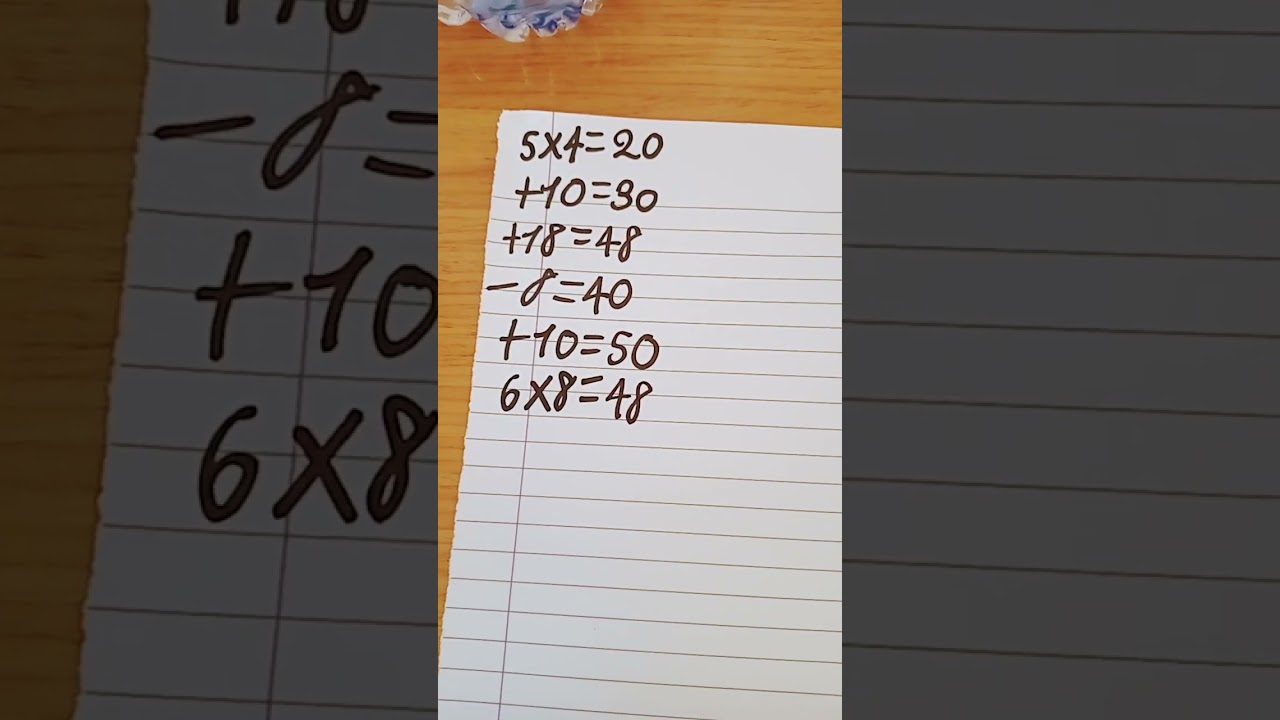 5x4=20
+10=30
+18=48
-8=40
+10=50
6x8=48